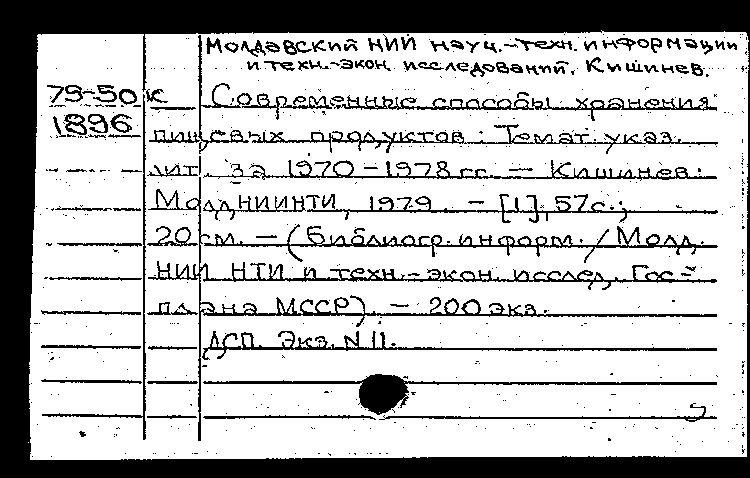 Молдавский НИИ науч.-техн. информации
и техн.-экон. исследований. Кишинев.
79-50к Современные способы хранения
1896 пищевых продуктов: Темат. указ.
лит. за 1970-1978 гг. — Кишинев:
МолдНИИНТИ, 1979. - [1], 57с.;
20 см. — (Библиогр. информ. / Молд.
НИИ НТИ и техн.-экон. исслед. Гос-
плана МССР). - 200 экз.
ДСП. Экз. N 11.